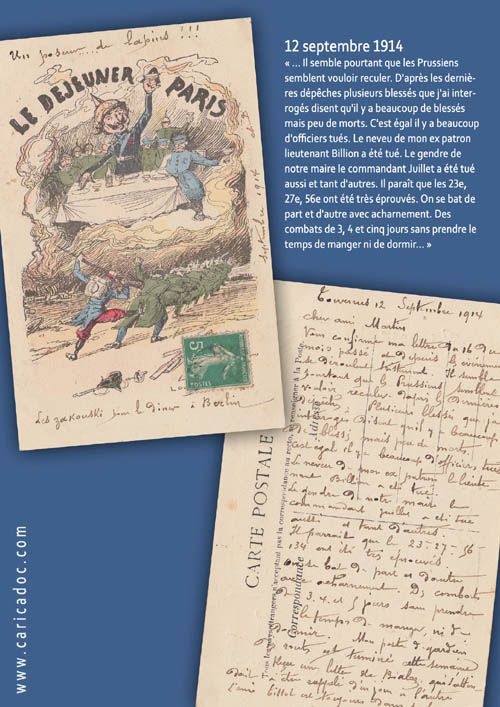 Un poseur... de lapins !!!
LE DEJEUNER À PARIS
septembre 1914
5c
POSTES
Les zakouski pour le diner à Berlin
12 septembre 1914
« ... Il semble pourtant que les Prussiens
semblent vouloir reculer. D'après les derniè-
res dépêches plusieurs blessés que j'ai inter-
rogés disent qu'il y a beaucoup de blessés
mais peu de morts. C'est égal il y a beaucoup
d'officiers tués. Le neveu de mon ex patron
lieutenant Billion a été tué. Le gendre de
notre maire le commandant Juillet a été tué
aussi et tant d'autres. Il paraît que les 23e,
27e, 56e ont été très éprouvés. On se bat de
part et d'autre avec acharnement. Des
combats de 3, 4 et cinq jours sans prendre le
temps de manger ni de dormir... »
12 Septembre 1914
Cher ami Martin
Vous confirme ma lettre du 16 D
mois passé et depuis les événements
se déroulent Il semble
pourtant que les Prussiens semblent
vouloir reculer. d'après les dernières
dépêches Plusieurs blessés que j'ai
interrogés disent qu'il y a beaucoup
de blessés mais peu de morts.
C'est égal il y a beaucoup d'officiers tués
Le neveu de mon ex patron le lieute
nant Billion a été tué.
Le gendre de notre maire le
commandant Juillet a été tué
aussi et tant d'autres.
Il parrait que le 23-27-56
134 ont été très éprouvés.
on se bat de part et d'autre
avec acharnement. Des combats
de 3. 4. et 5 jours sans prendre
le temps de manger, ni de
dormir. Mon poste de gardien
de route, est terminé cette semaine
Reçu une lettre de
dait à être rappelé d'un jour à l'autre
L'ami Billot est toujours dans
CARTE POSTALE
Correspondance
Adresse
www.caricadoc.com